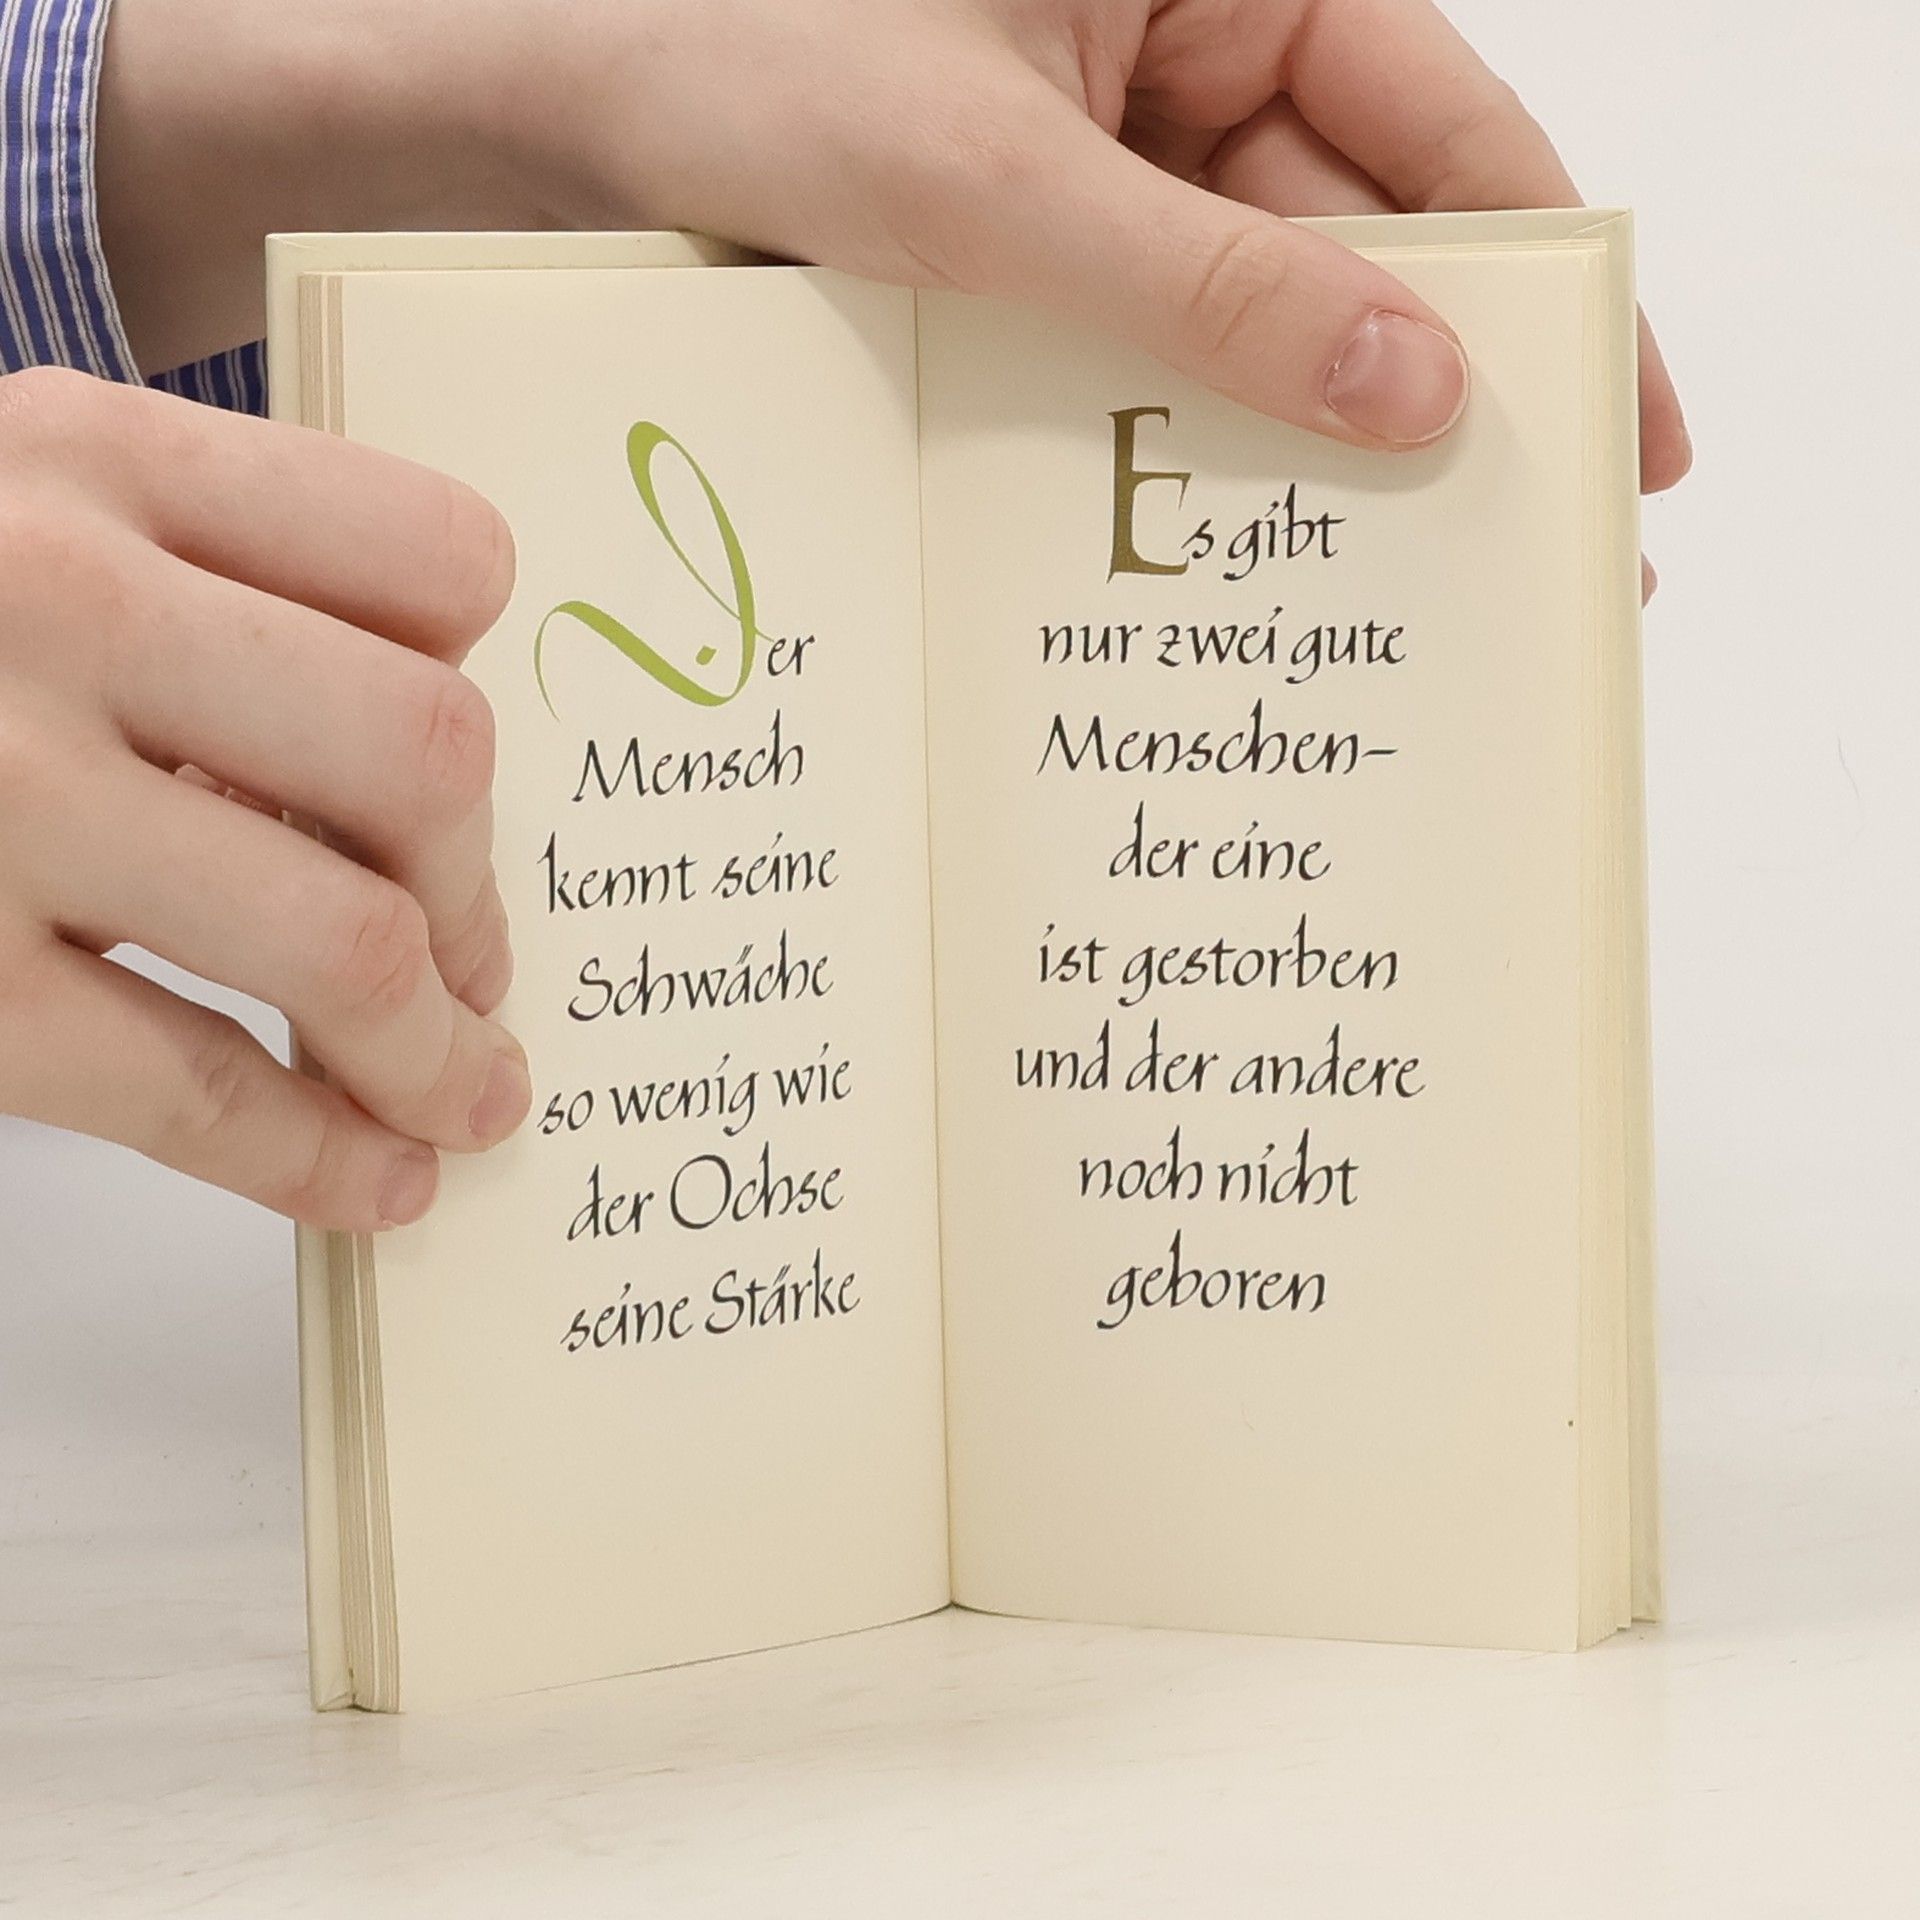 Der
Mensch
kennt seine
Schwäche
so wenig wie
der Ochse
seine Stärke
Es gibt
nur zwei gute
Menschen-
der eine
ist gestorben
und der andere
noch nicht
geboren